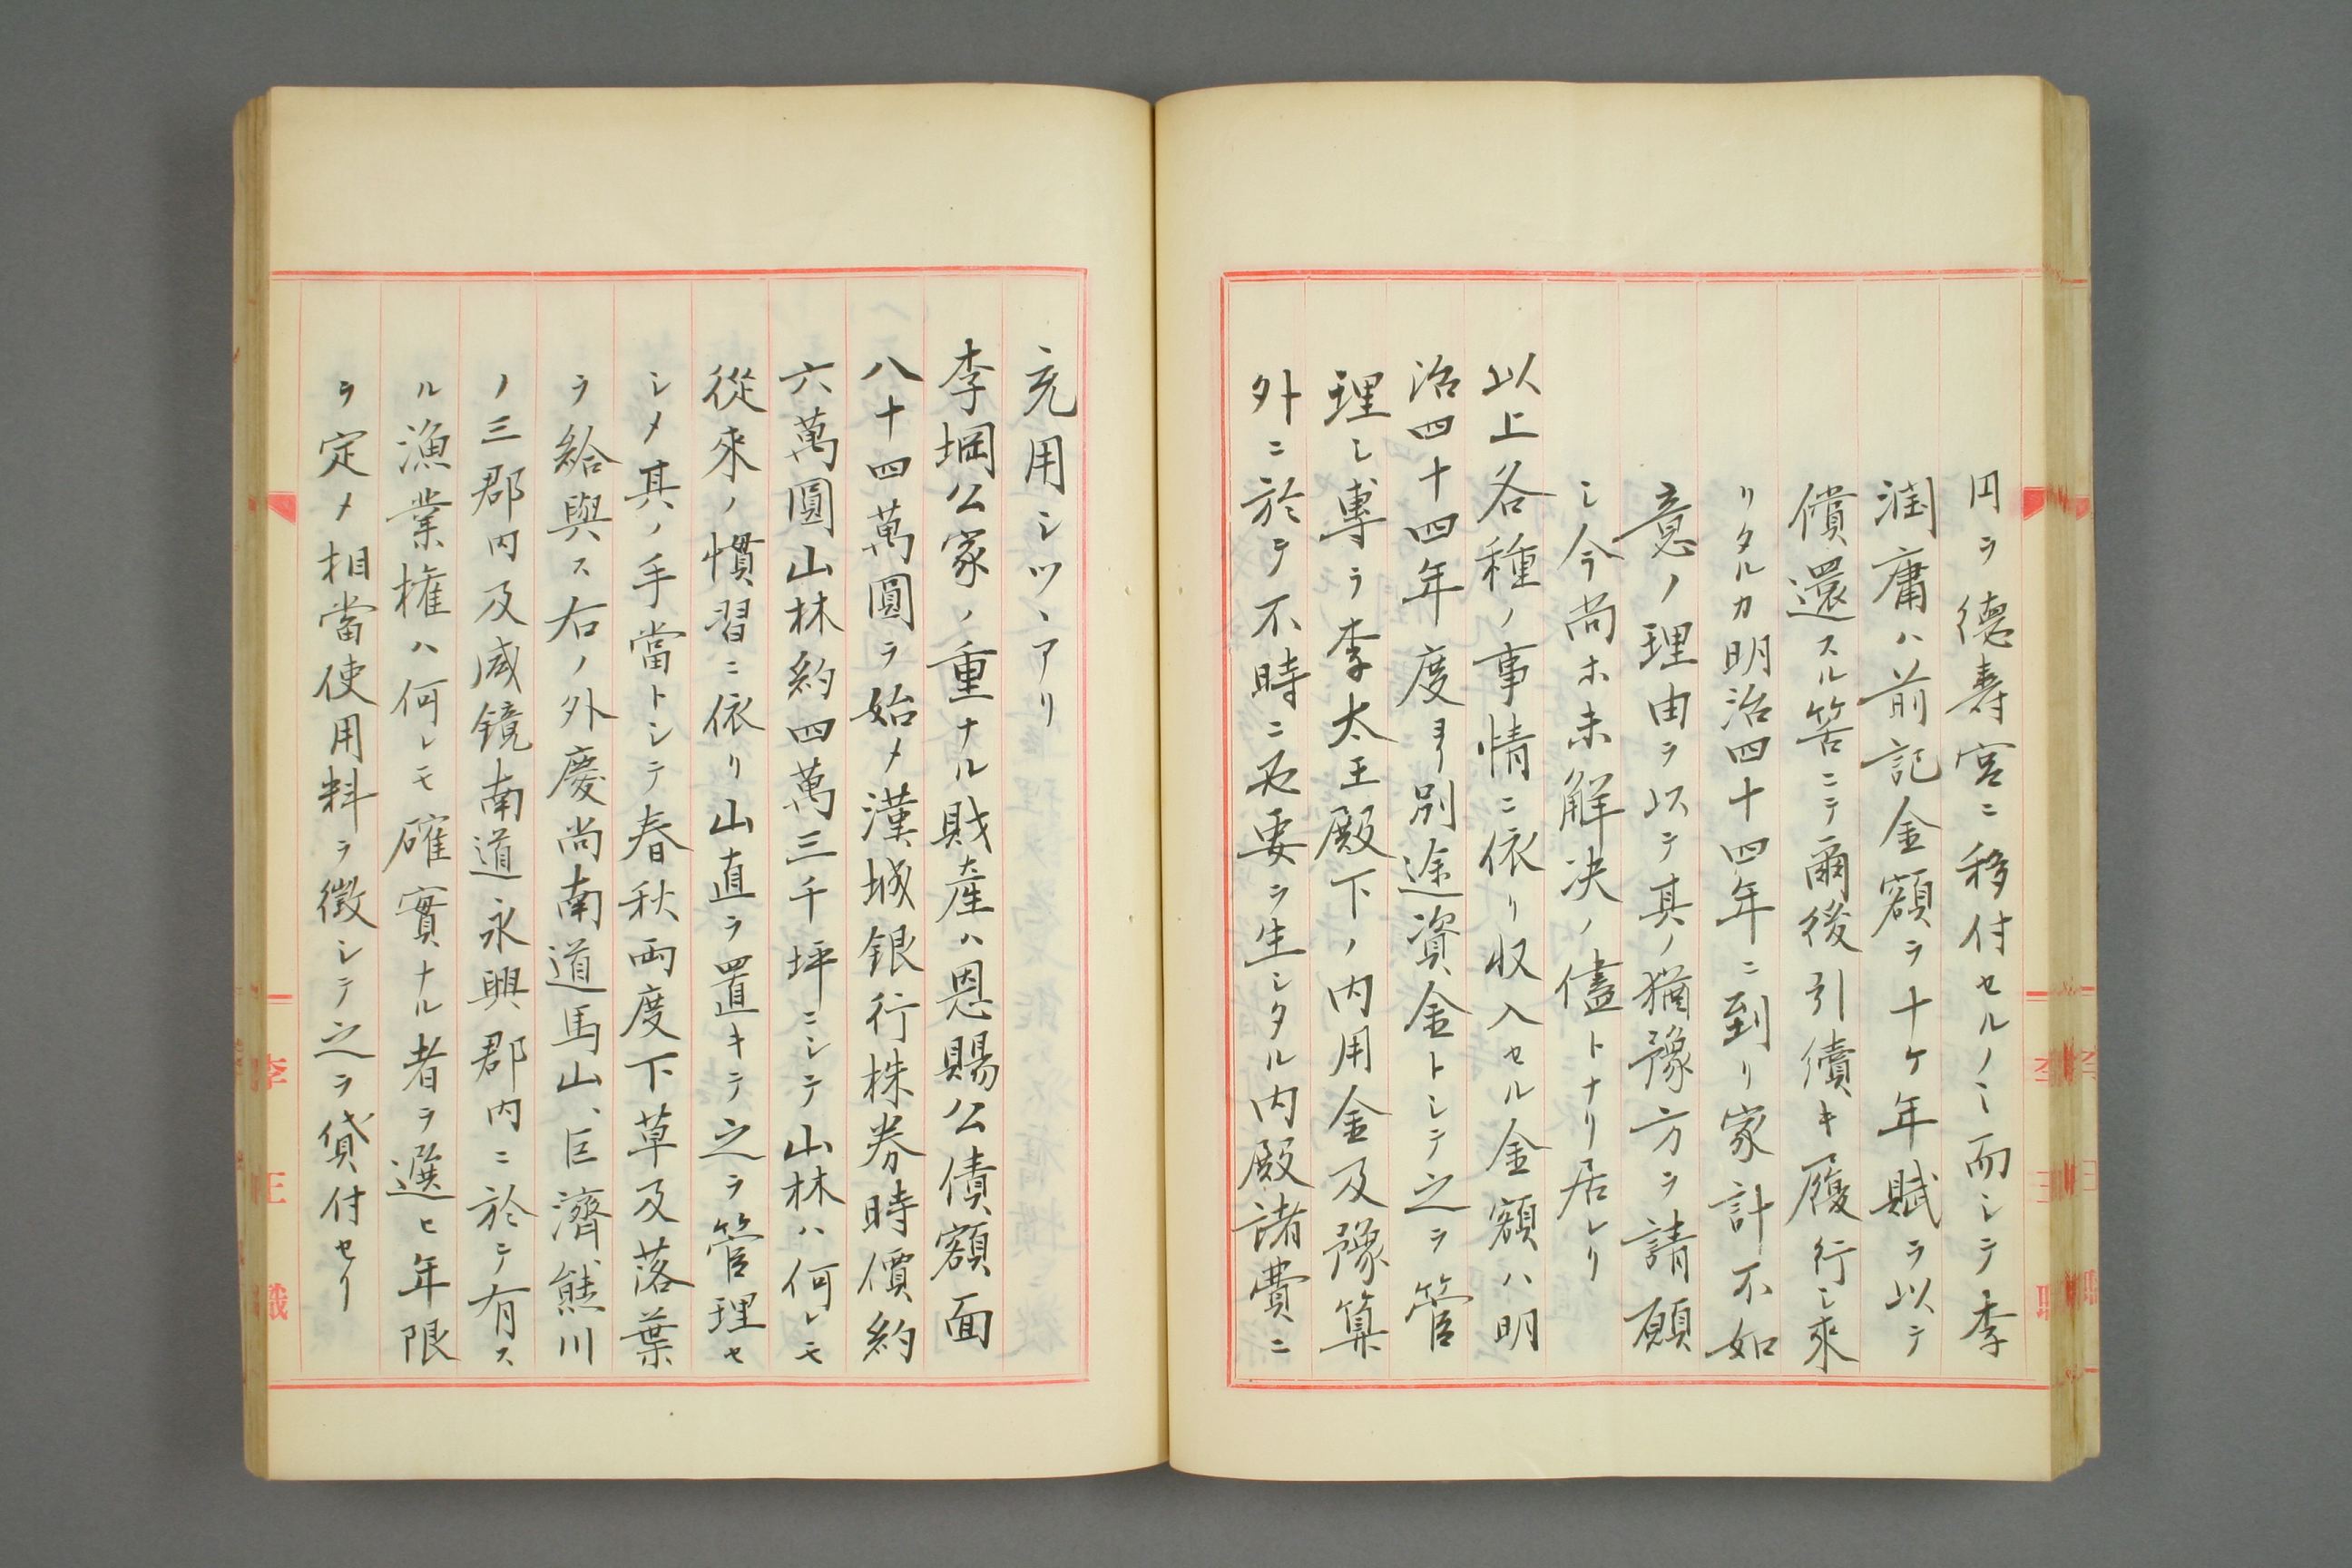 円ヲ徳寿宮ニ移付セルノミ而シテ李
潤庸ハ前記金額ヲ十ケ年賦ヲ以テ
償還スル筈ニテ爾後引續キ履行シ來
リタルカ明治四十四年ニ到リ家計不如
意ノ理由ヲ以テ其ノ猶豫方ヲ請願
シ今尚ホ未解决ノ儘トナリ居レリ
以上各種ノ事情ニ依リ收入セル金額ハ明
治四十四年度ヨリ別途資金トシテ之ヲ管
理シ專ラ李太王殿下ノ内用金及豫算
外ニ於テ不時ニ必要ヲ生シタル内殿諸費ニ
充用シツヽアリ
李堈公家ノ重ナル財産ハ恩賜公債額面
八十四萬圓ヲ始メ漢城銀行株券時價約
六萬圓山林約四萬三千坪ニシテ山林ハ何レモ
從來ノ慣習ニ依リ山直ヲ置キテ之ヲ管理セ
シメ其ノ手當トシテ春秋両度下草及落葉
ヲ給與ス右ノ外慶尚南道馬山、巨濟、熊川
ノ三郡内及咸鏡南道永興郡内ニ於テ有ス
ル漁業權ハ何レモ確實ナル者ヲ選ヒ年限
ヲ定メ相當使用料ヲ徴シテ之ヲ貸付セリ
李王職